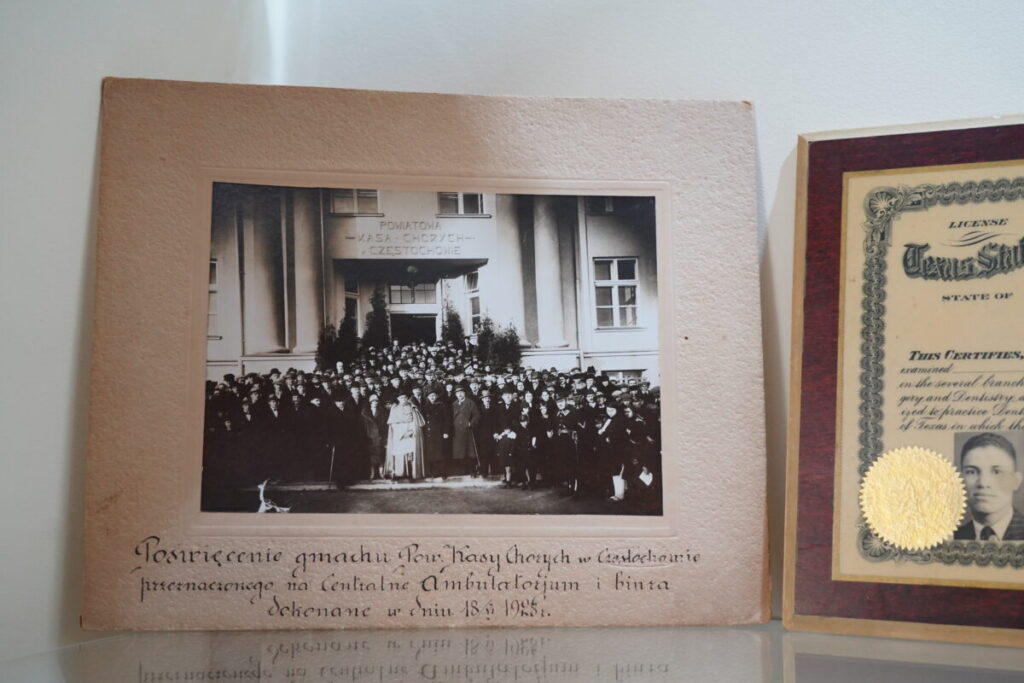 POWIATOWA
KASA CHORYCH
w CZĘSTOCHOWIE
Poświęcenie gmachu Pow. Kasy Chorych w Częstochowie
przeznaczonego na Centralne Ambulatorjum i biura
dokonane w dniu 18
LICENSE
Texas Stat
STATE OF
THIS CERTIFIES,
examined
in the several branch
gery and Dentistry, a
ized to practice Den
of Texas, in which th